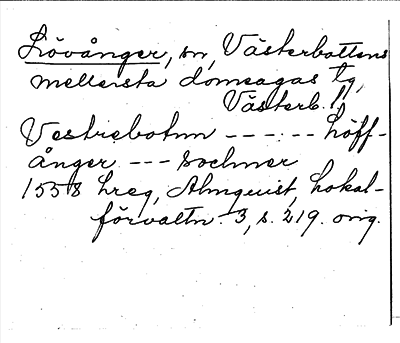 Lövånger, sn, Västerbottens
mellersta domsagas tg,
Västerb. l.
Vestrebotnn --- : -- Löff-
ånger --- Sochner
1558 Lreg, Almquist, Lokal-
förvaltn. 3, s. 219. orig.